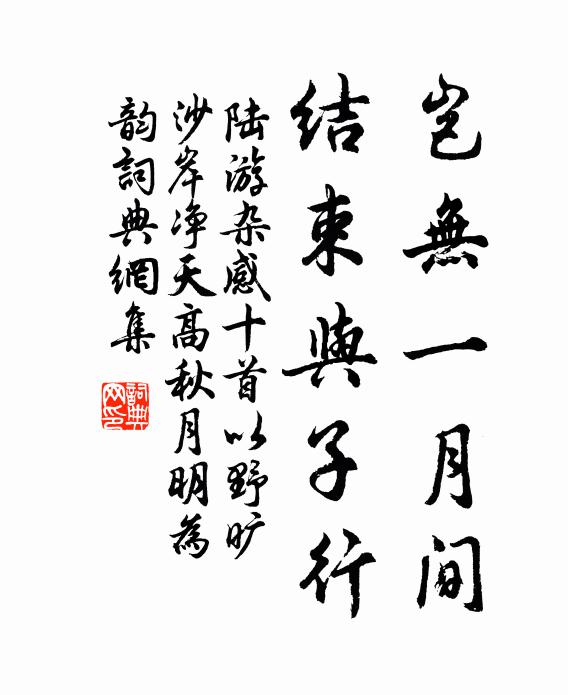 岂無一月间
结束與子行
陆游杂感十首以野旷
沙岸净天高秋月明為
韵詞典網集
詞典
网印